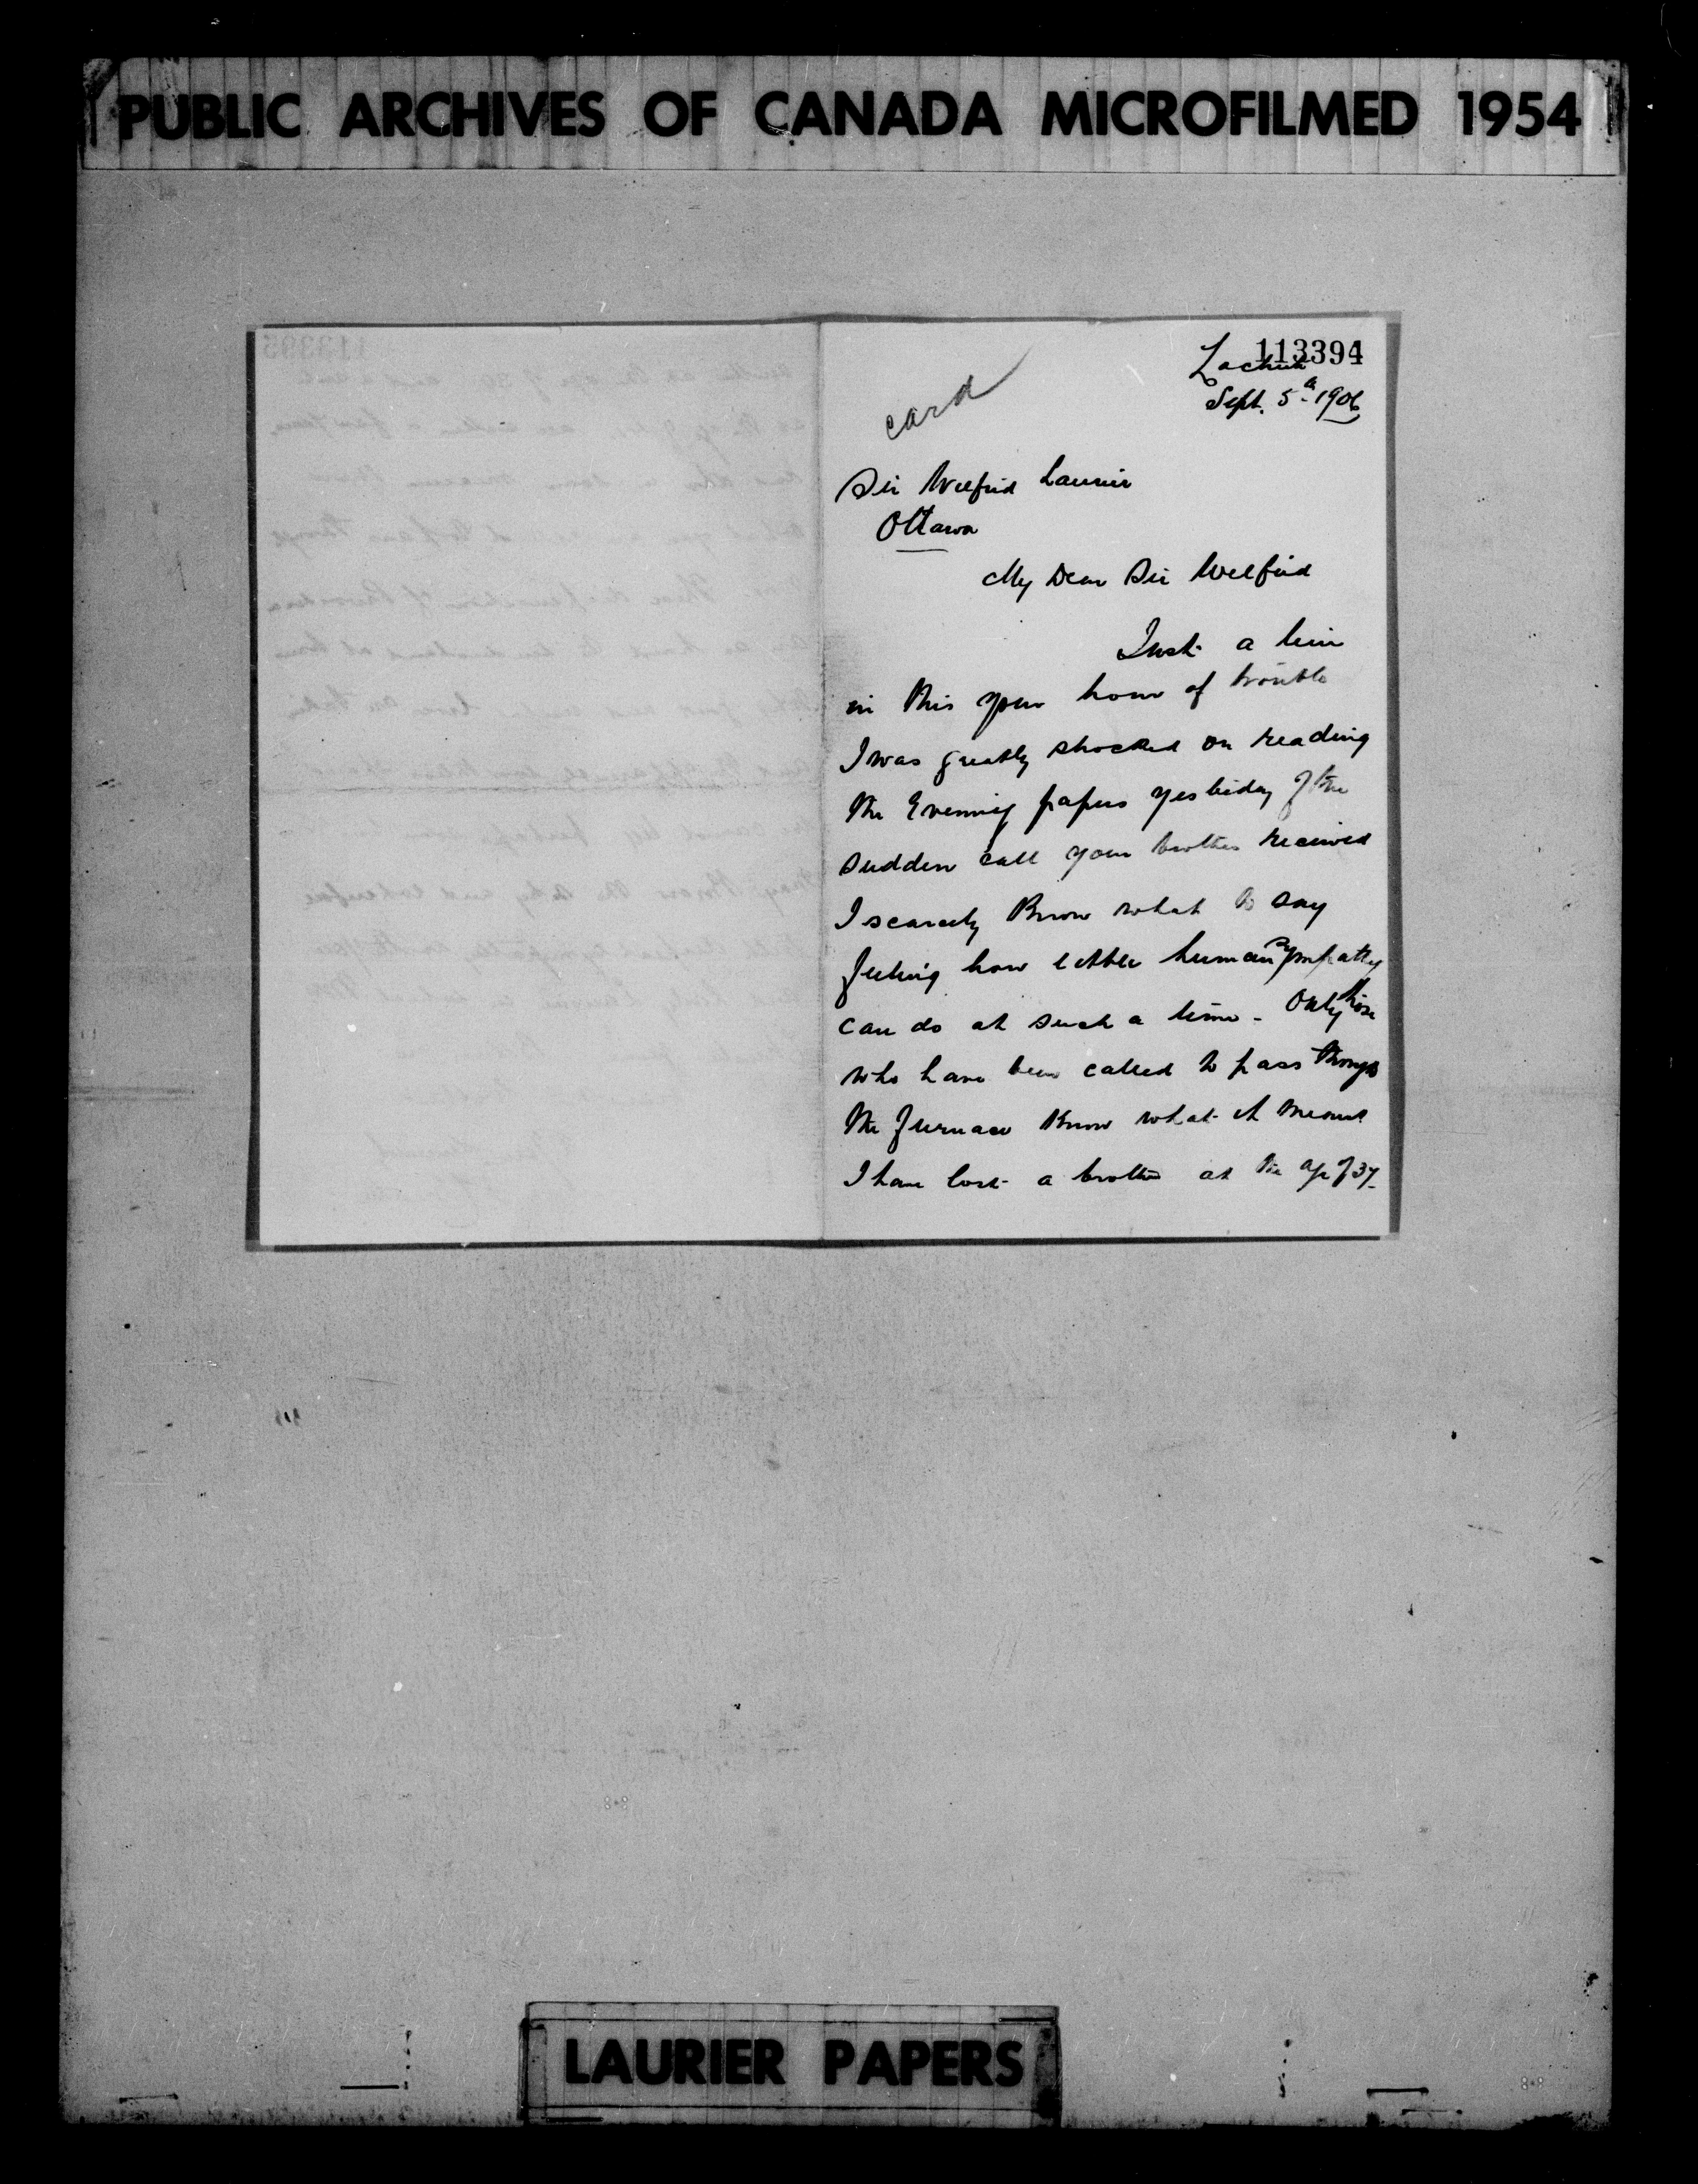 PUBLIC ARCHIVES OF CANADA MICROFILMED 1954
113394
Lachute
Sept. 5th 1906
card
Sir Wilfrid Laurier
Ottawa
My Dear Sir Wilfrid
Just a line
in this your hour of trouble
I was greatly shocked on reading
the Evening papers yesterday of the
sudden call your brother received
I scarcely know what to say
feeling how little human sympathy
can do at such a time - Only those
who have been called to pass through
the furnace know what it means
I have lost a brother at the age of 37
LAURIER PAPERS